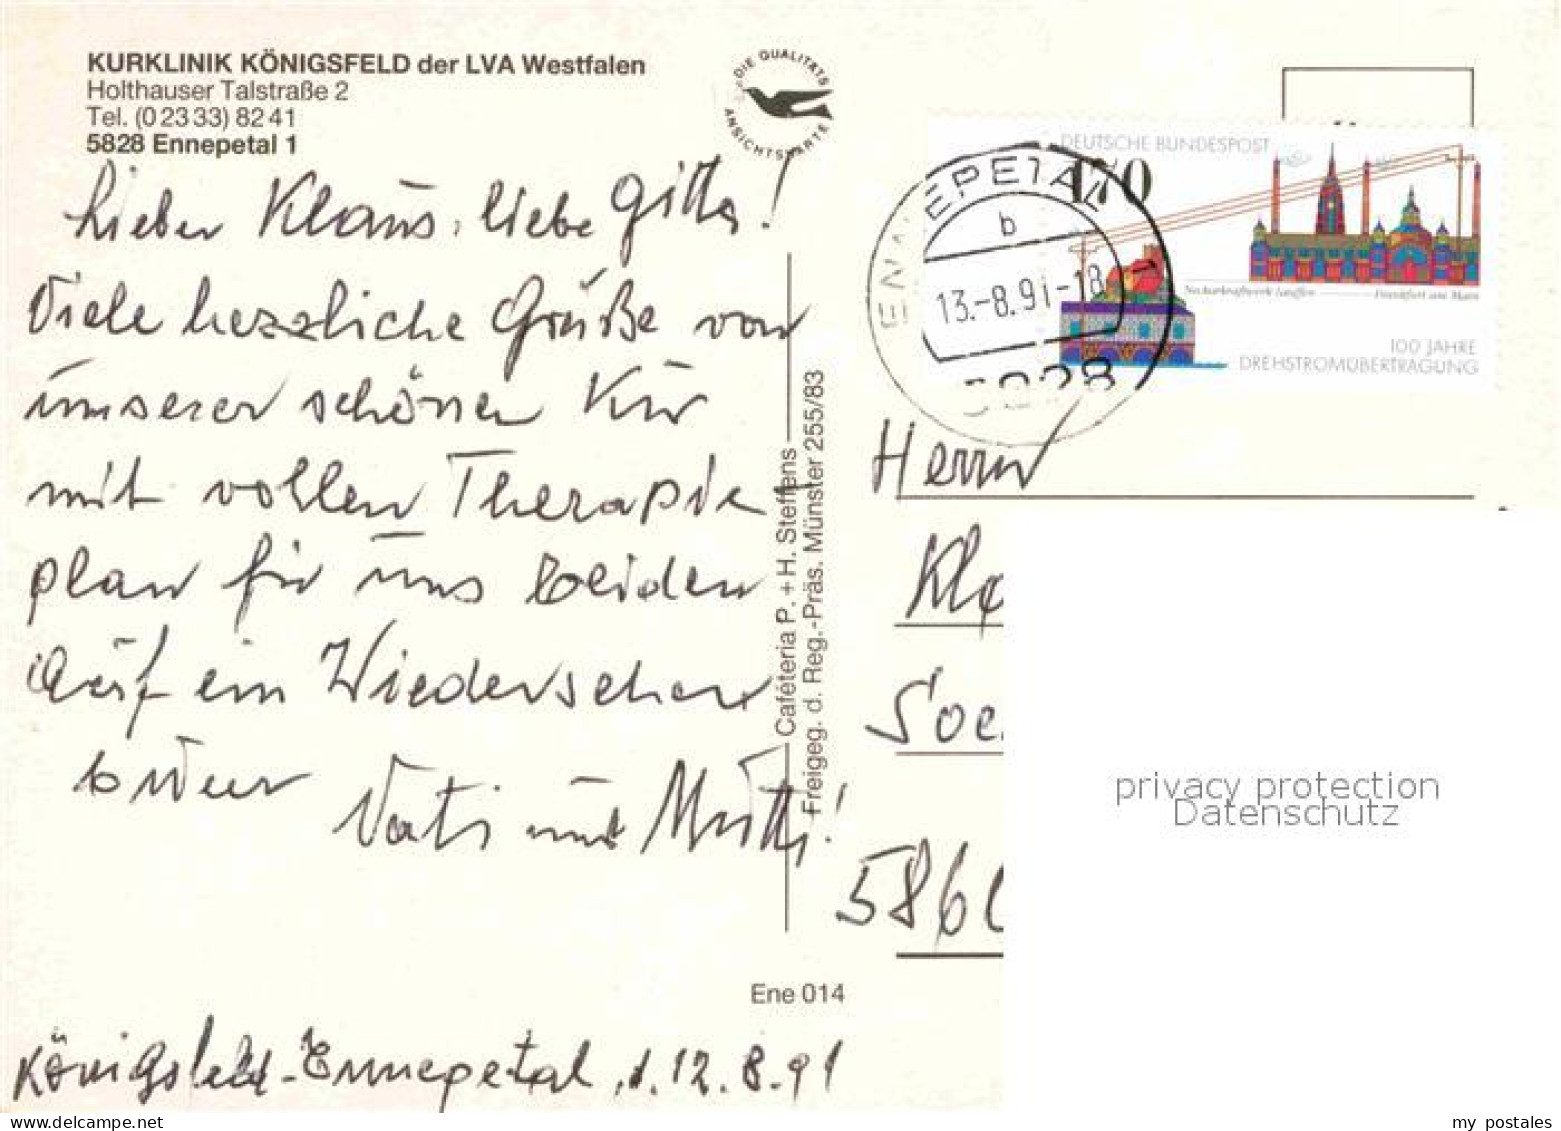 KURKLINIK KÖNIGSFELD der LVA Westfalen
Holthauser Talstraße 2
Tel. (0 23 33) 82 41
5828 Ennepetal 1
DIE QUALITÄTS
ANSICHTSKARTE
Lieber Klaus, liebe Gitta!
Viele herzliche Grüße von
unserer schönen Kur
mit vollen Therapie
plan für uns beiden
Auf ein Wiedersehen
Vati und Mutti!
Königsfeld-Ennepetal, d. 12.8.91
Caféteria P. + H. Steffens
Freigeg. d. Reg.-Präs. Münster 255/83
Ene 014
DEUTSCHE BUNDESPOST
170
Neckarkraftwerk Lauffen
Frankfurt am Main
100 JAHRE
DREHSTROMÜBERTRAGUNG
ENNEPETAL 1
b
13.-8.91-18
5828
Herrn
Kla
Soe
586
privacy protection
Datenschutz
my postales